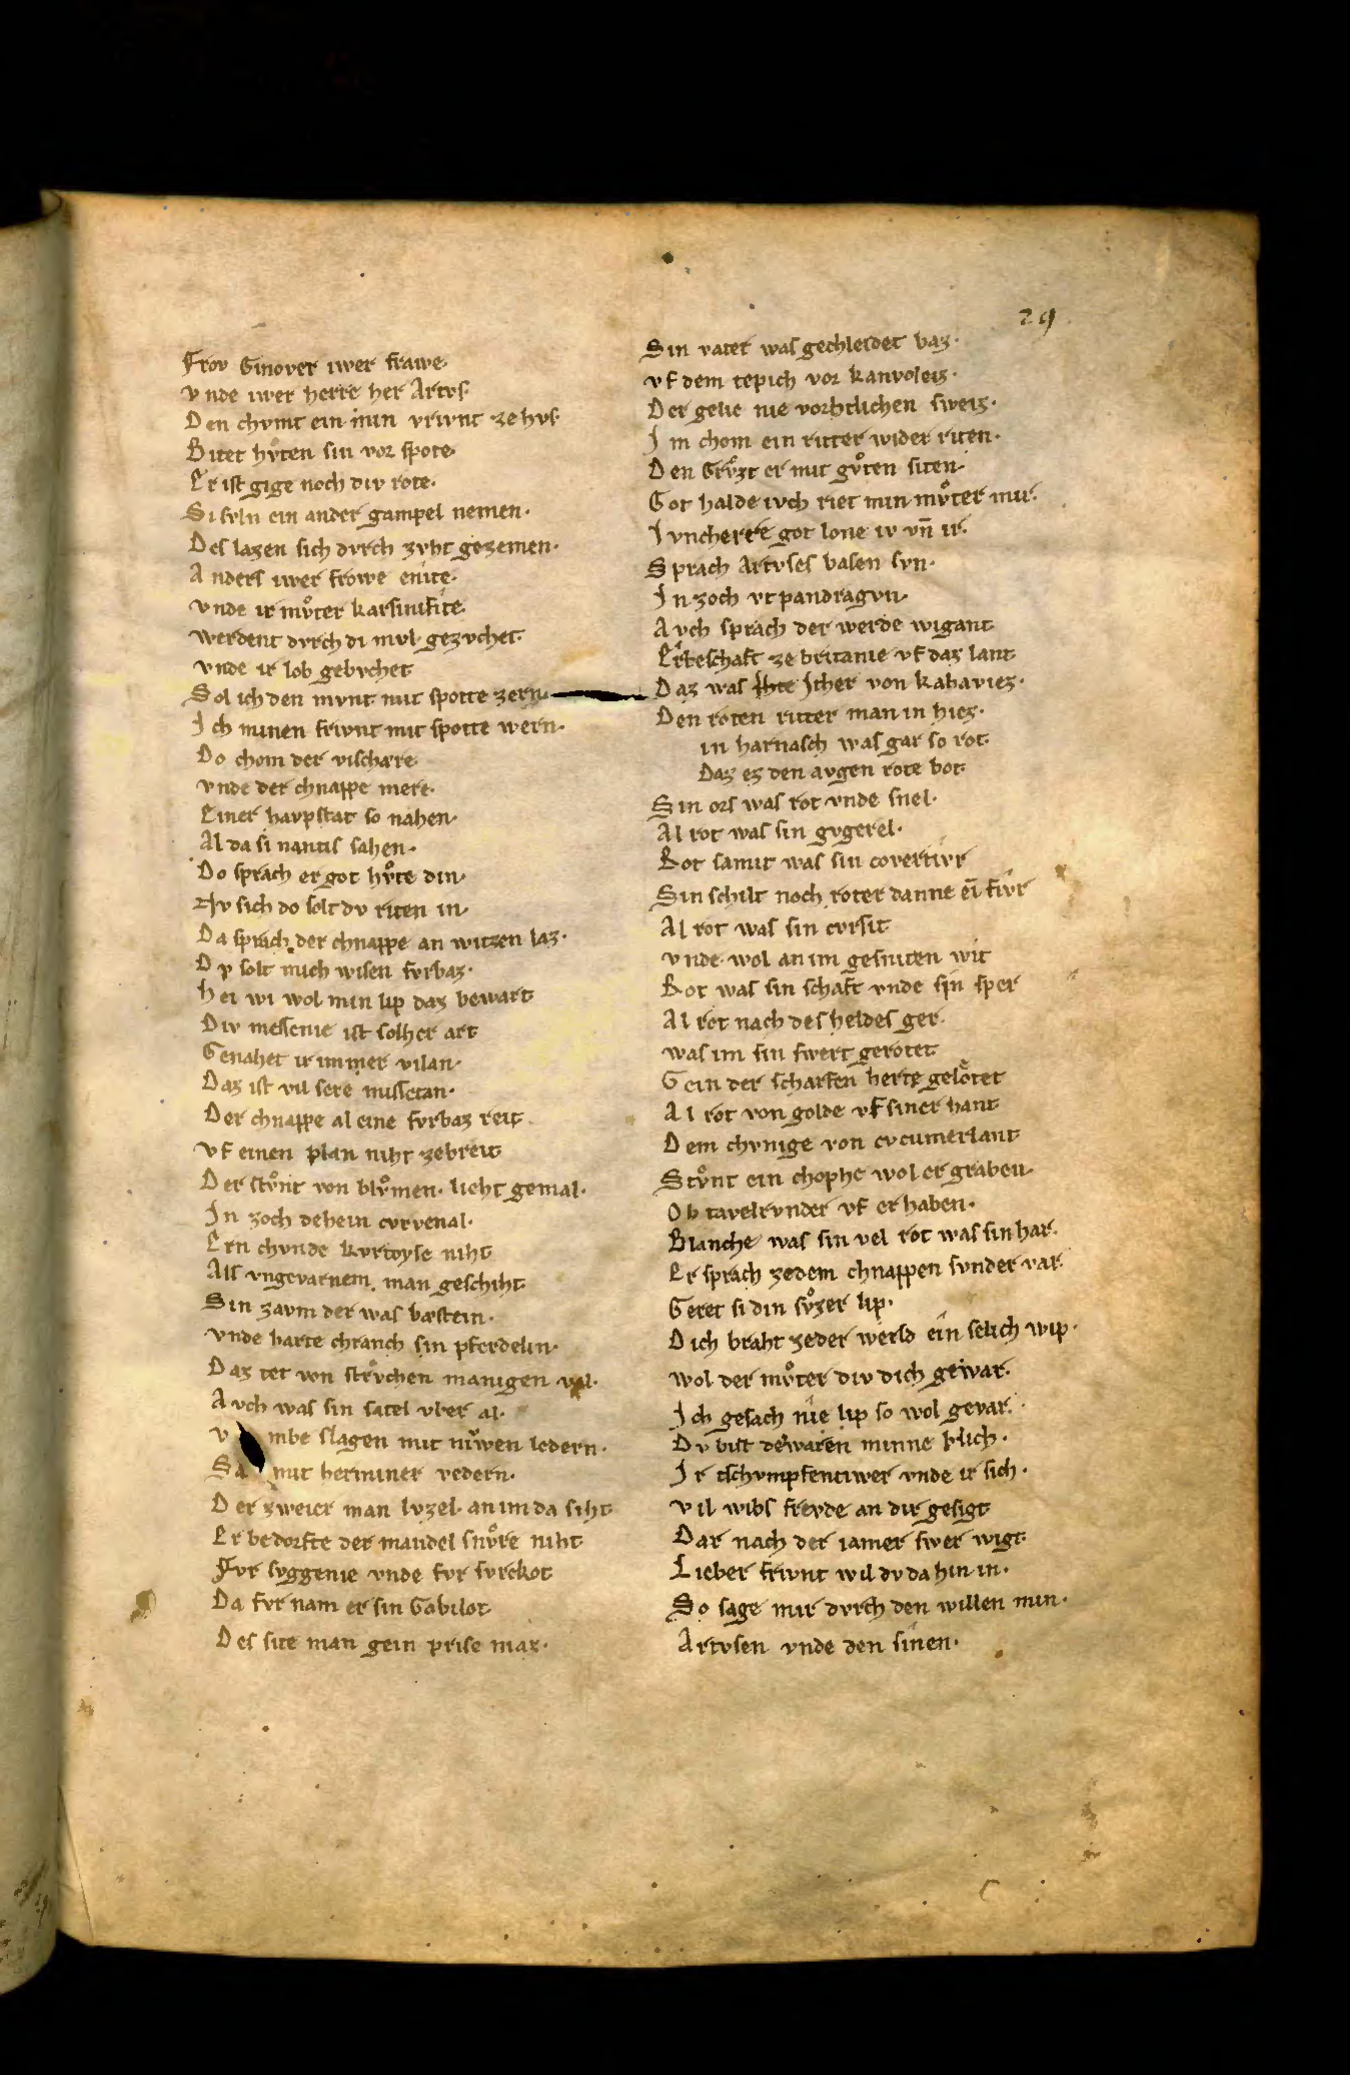 29
Frov Ginover iwer frawe·
vnde iwer herre her Artvs·
Den chvmt ein min vrivnt ze hvs·
Bitet hvͦten sin vor spote·
Er ist gige noch div rote·
Si svln ein ander gampel nemen·
Des lazen sich dvrch zvht gezemen·
Anders iwer frowe enite·
vnde ir mvͦter karsinefite
werdent dvrch di mvl gezvchet·
vnde ir lob gebvchet
Sol ich den mvnt mit spotte zern·
Ich minen frivnt mit spotte wern·
Do chom der vischære
vnde der chnappe mere·
Einer havpstat so nahen·
Al da si nantis sahen·
Do sprach er got hvͦte din·
Nv sich do solt dv riten in·
Da sprach der chnappe an witzen laz·
Dv solt mich wisen fvrbaz·
Hei wi wol min lip daz bewart
Div messenie ist solher art
Genahet ir immer vilan·
Daz ist vil sere missetan·
Der chnappe al eine fvrbaz reit
vf einen plan niht zebreit
Der stvͦnt von blvͦmen· lieht gemal·
In zoch dehein cvrvenal·
Ern chvnde kvrtoyse niht
Als vngevarnem man geschiht
Sin zavm der was bæstein·
vnde harte chranch sin pferdelin·
Daz tet von strvchen manigen val·
Avch was sin satel vber al·
v mbe slagen mit niwen ledern·
Sa mit herminer vedern·
Der zweier man lvzel an im da siht
Er bedorfte der mandel snvͦre niht
Fvr svggenie vnde fvr svrckot
Da fvr nam er sin Gabilot
Des site man gein prise maz·
Sin vater was gechleidet baz·
vf dem tepich vor kanvoleiz·
Der gelie nie vorhtlichen sweiz·
Im chom ein ritter wider riten·
Den Grvͦzt er mit gvͦten siten·
Got halde ivch riet min mvͦter mir·
Ivncherre got lone iv vn̄ ir·
Sprach Artvses basen svn·
In zoch vtpandragvn·
Avch sprach der werde wigant
Erbeschaft ze britanie vf daz lant
Daz was Ither von kahaviez·
Den roten ritter man in hiez·
in harnasch was gar so rot
Daz ez den avgen rote bot
Sin ors was rot vnde snel·
Al rot was sin gvgerel·
Rot samit was sin covertivr
Sin schilt noch roter danne ei̅ fivr
Al rot was sin cvrsit
vnde wol an im gesniten wit
Rot was sin schaft vnde sin sper
Al rot nach des heldes ger·
was im sin swert gerotet
Gein der scharfen herte gelotet
Al rot von golde vf siner hant
Dem chvnige von cvcumerlant
Stvͦnt ein chophe wol er graben·
Ob tavelrvnder vf er haben·
Blanche was sin vel rot was sin har·
Er sprach zedem chnappen svnder var·
Geret si din svͦzer lip·
Dich braht zeder werld ein selich wip·
wol der mvͦter div dich gewar·
Ich gesach nie lip so wol gevar·
Dv bist dewaren minne blich·
Ir tschvmpfentiwer vnde ir sich·
vil wibs frevde an dir gesigt
Dar nach der iamer swer wigt
Lieber frivnt wil dv da hin in·
So sage mir dvrch den willen min·
Artvsen vnde den sinen·